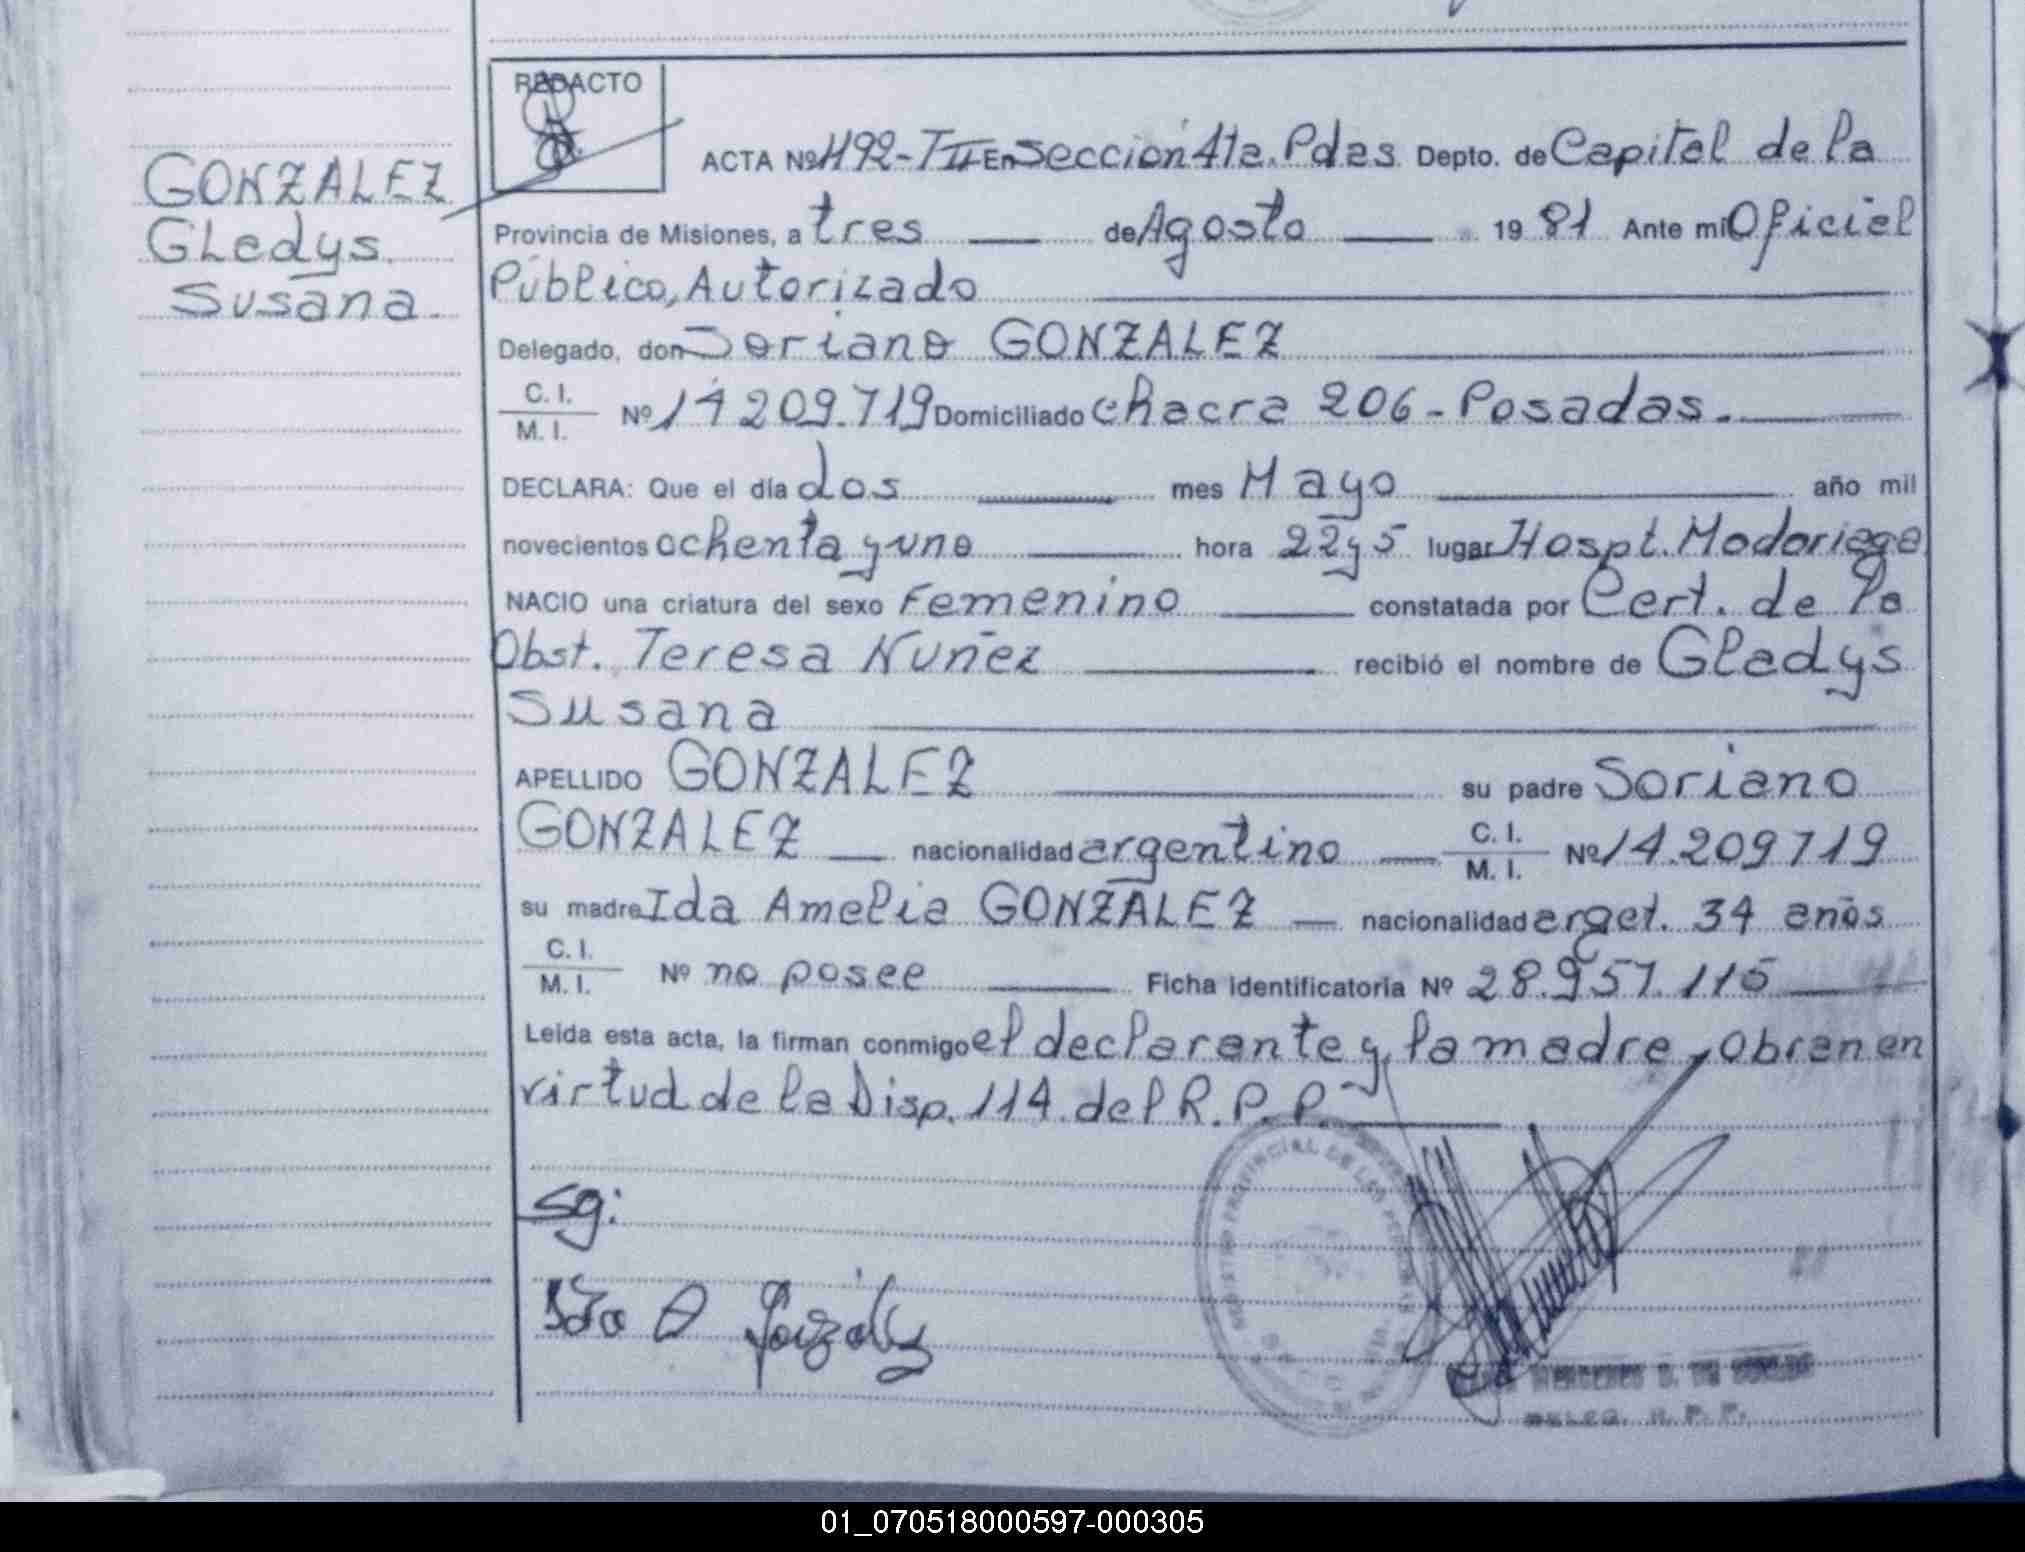 REDACTO
GONZALEZ
Gledys
Susana.
ACTA Nº 1192-TII En Sección 41a. Pdas. Depto. de Capital de la
Provincia de Misiones, a tres de Agosto 19 81 Ante mi Oficial
Público, Autorizado
Delegado, don Soriano GONZALEZ
C. I.
M. I. Nº 14209.719 Domiciliado Chacra 206 - Posadas.
DECLARA: Que el día dos mes Mayo año mil
novecientos ochenta y uno hora 22 y 5 lugar Hospt. Madariaga
NACIO una criatura del sexo Femenino constatada por Cert. de la
Obst. Teresa Nuñez recibió el nombre de Gladys
Susana
APELLIDO GONZALEZ su padre Soriano
GONZALEZ nacionalidad argentino C. I. M. I. Nº 14.209719
su madre Ida Amelia GONZALEZ nacionalidad arget. 34 años
C. I.
M. I. Nº no posee Ficha identificatoria Nº 28.957.115
Leída esta acta, la firman conmigo el declarante y la madre, obran en
virtud de la Disp. 114 del R.P.P.
Sg:
Ida A González
REGISTRO PROVINCIAL DE LAS PERSONAS
DELEG. R. P. P.
01_070518000597-000305